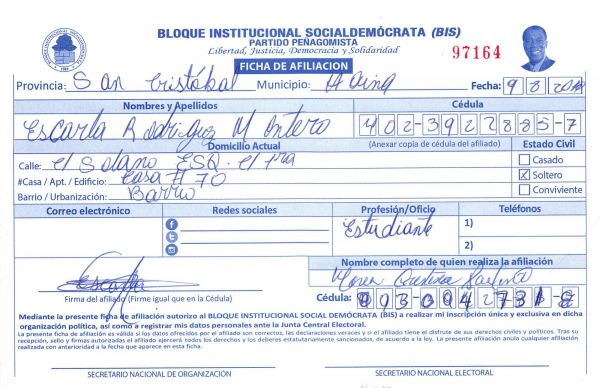 BLOQUE INSTITUCIONAL SOCIALDEMÓCRATA (BIS)
PARTIDO PEÑAGOMISTA
Libertad, Justicia, Democracia y Solidaridad
97164
FICHA DE AFILIACION
Provincia: San Cristóbal Municipio: Haina Fecha: 9 8
Nombres y Apellidos Cédula
Escarla Rodriguez Montero 402-3927885-7
Domicilio Actual (Anexar copia de cédula del afiliado) Estado Civil
Calle: El Solano ESQ. el
#Casa / Apt. / Edificio: Casa # 70
Barrio / Urbanización: Barrio
Casado
X Soltero
Conviviente
Correo electrónico Redes sociales Profesión/Oficio Teléfonos
Estudiante
1)
2)
Nombre completo de quien realiza la afiliación
Firma del afiliado (Firme igual que en la Cédula)
Cédula: 093-
Mediante la presente ficha de afiliación autorizo al BLOQUE INSTITUCIONAL SOCIAL DEMÓCRATA (BIS) a realizar mi inscripción única y exclusiva en dicha
organización política, así como a registrar mis datos personales ante la Junta Central Electoral.
La presente ficha de afiliación es válida si los datos ofrecidos por el afiliado son correctos, las declaraciones veraces y si el afiliado tiene el disfrute de sus derechos civiles y políticos. Tras su
recepción, sello y firmas autorizadas el afiliado ejercerá todos los derechos y los deberes estatutariamente sancionados, de acuerdo a la ley. La presente afiliación anula cualquier afiliación
realizada con anterioridad a la fecha que aparece en esta ficha.
SECRETARIO NACIONAL DE ORGANIZACIÓN SECRETARIO NACIONAL ELECTORAL